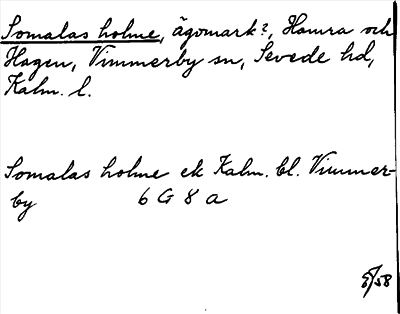 Somalas holme, ägomark?, Hamra och
Hagen, Vimmerby sn, Sevede hd,
Kalm. l.
Somalas holme ek Kalm. bl. Vimmer-
by 6 G 8 a